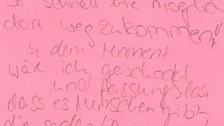 so schnell wie möglich
dort wegzukommen!
In dem Moment
war ich geschockt
und fassungslos
dass es Menschen gibt
die